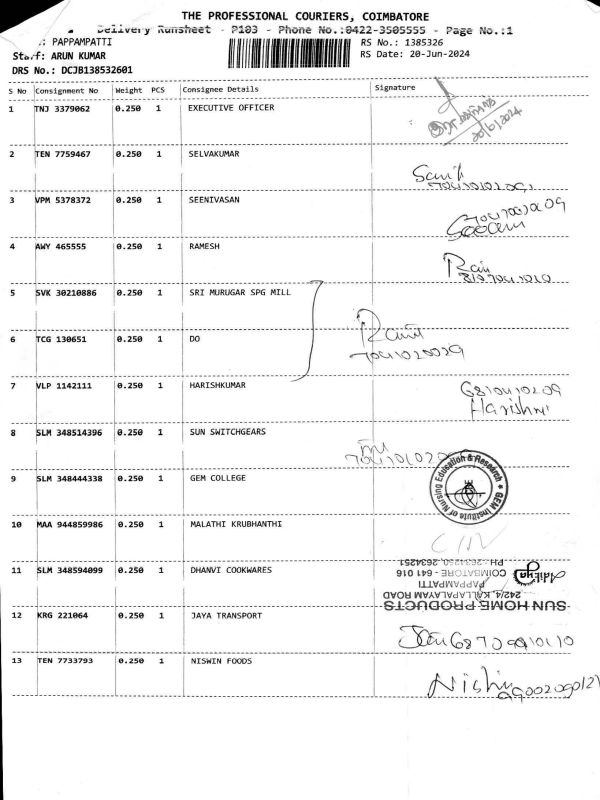 THE PROFESSIONAL COURIERS, COIMBATORE
Delivery Runsheet - P103 - Phone No.:0422-3505555 - Page No.:1
: PAPPAMPATTI
RS No.: 1385326
Staff: ARUN KUMAR
RS Date: 20-Jun-2024
DRS No.: DCJB138532601
S No Consignment No Weight PCS Consignee Details Signature
1 TNJ 3379062 0.250 1 EXECUTIVE OFFICER
20/6/2024
2 TEN 7759467 0.250 1 SELVAKUMAR
3 VPM 5378372 0.250 1 SEENIVASAN
4 AWY 465555 0.250 1 RAMESH
5 SVK 30210886 0.250 1 SRI MURUGAR SPG MILL
6 TCG 130651 0.250 1 DO
7 VLP 1142111 0.250 1 HARISHKUMAR
8 SLM 348514396 0.250 1 SUN SWITCHGEARS
9 SLM 348444338 0.250 1 GEM COLLEGE
GEM Institute of Nursing Education & Research
10 MAA 944859986 0.250 1 MALATHI KRUBHANTHI
11 SLM 348594099 0.250 1 DHANVI COOKWARES
SUN HOME PRODUCTS
242/4, KALLAPALAYAM ROAD
PAPPAMPATTI
COIMBATORE - 641 016
Aditya
12 KRG 221064 0.250 1 JAYA TRANSPORT
13 TEN 7733793 0.250 1 NISWIN FOODS